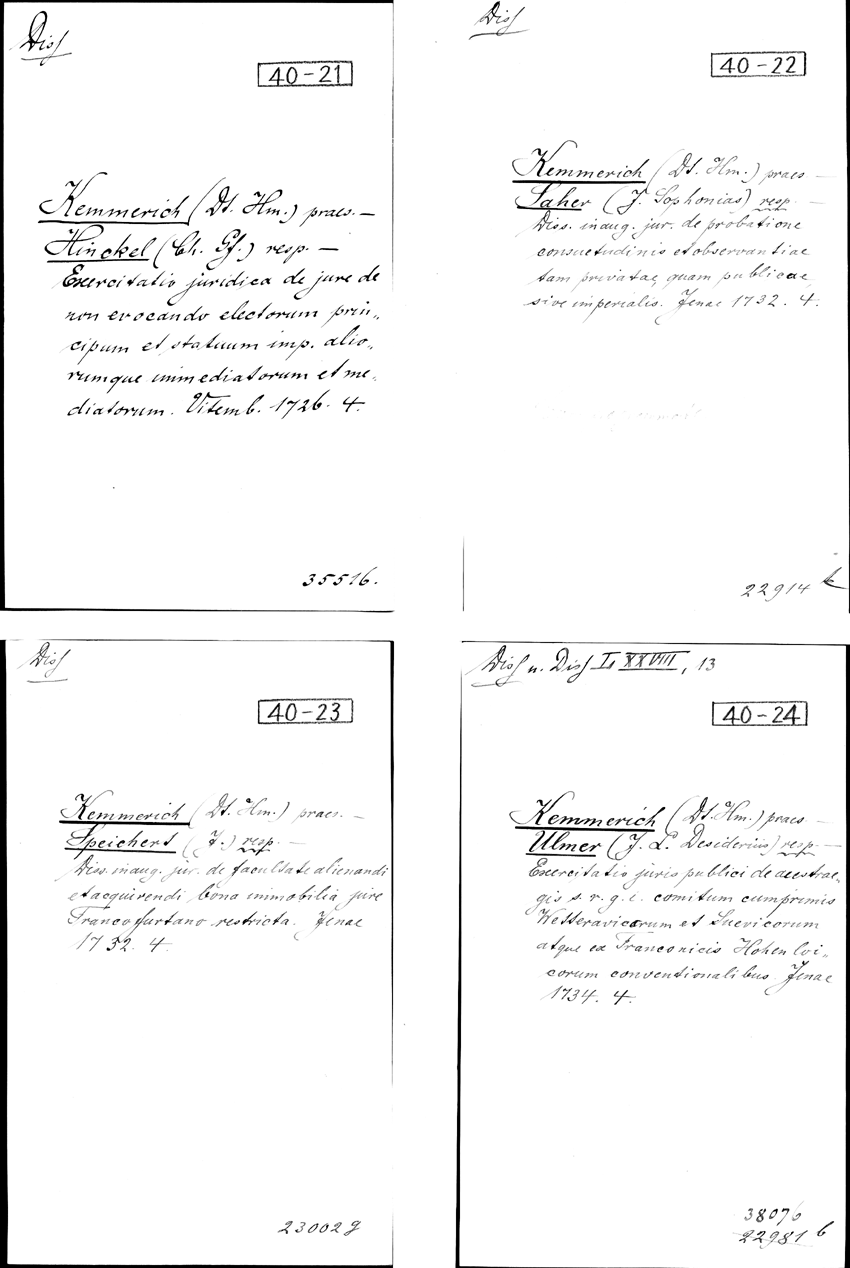 Diss
40-21
Kemmerich (Dt. Hm.) praes. —
Hinckel (Ch. Gf.) resp. —
Exercitatio juridica de jure de
non evocando electorum prin„
cipum et statuum imp. alio„
rumque immediatorum et me„
diatorum. Vitemb. 1726. 4.
35516.
Diss
40-22
Kemmerich (Dt. Hm.) praes —
Saher (J. Sophonias) resp. —
Diss. inaug. jur. de probatione
consuetudinis et observantiae
tam privatae, quam publicae
sive imperialis. Jenae 1732. 4.
22914
Diss
40-23
Kemmerich (Dt. Hm.) praes. —
Speichert (J.) resp. —
Diss. inaug. jur. de facultate alienandi
et acquirendi bona immobilia jure
Francofurtano restricta. Jenae
1732. 4.
23002g
Diss u. Diss I, XXVIII, 13
40-24
Kemmerich (Dt. Hm.) praes —
Ulmer (J. L. Desiderius) resp. —
Exercitatio juris publici de austrae„
gis s. r. g. i. comitum cumprimis
Wetteravicorum et Suevicorum
atque ex Franconicis Hohenloi„
corum conventionalibus. Jenae
1734. 4.
38076
22981 b